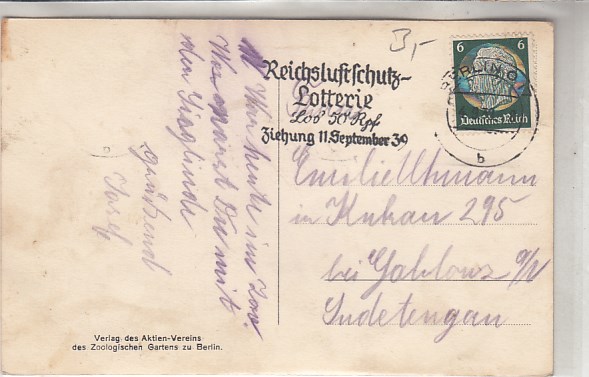 3,-
Reichsluftschutz-
Lotterie
Los 50 Rpf
Ziehung 11. September 39
6 6
Deutsches Reich
BERLIN
b
War heute im Zoo.
Was Du mit
grüßend
Josef
Emilie Ullmann
in Kukan 295
bei Gablonz a/N
Sudetengau
Verlag des Aktien-Vereins
des Zoologischen Gartens zu Berlin.